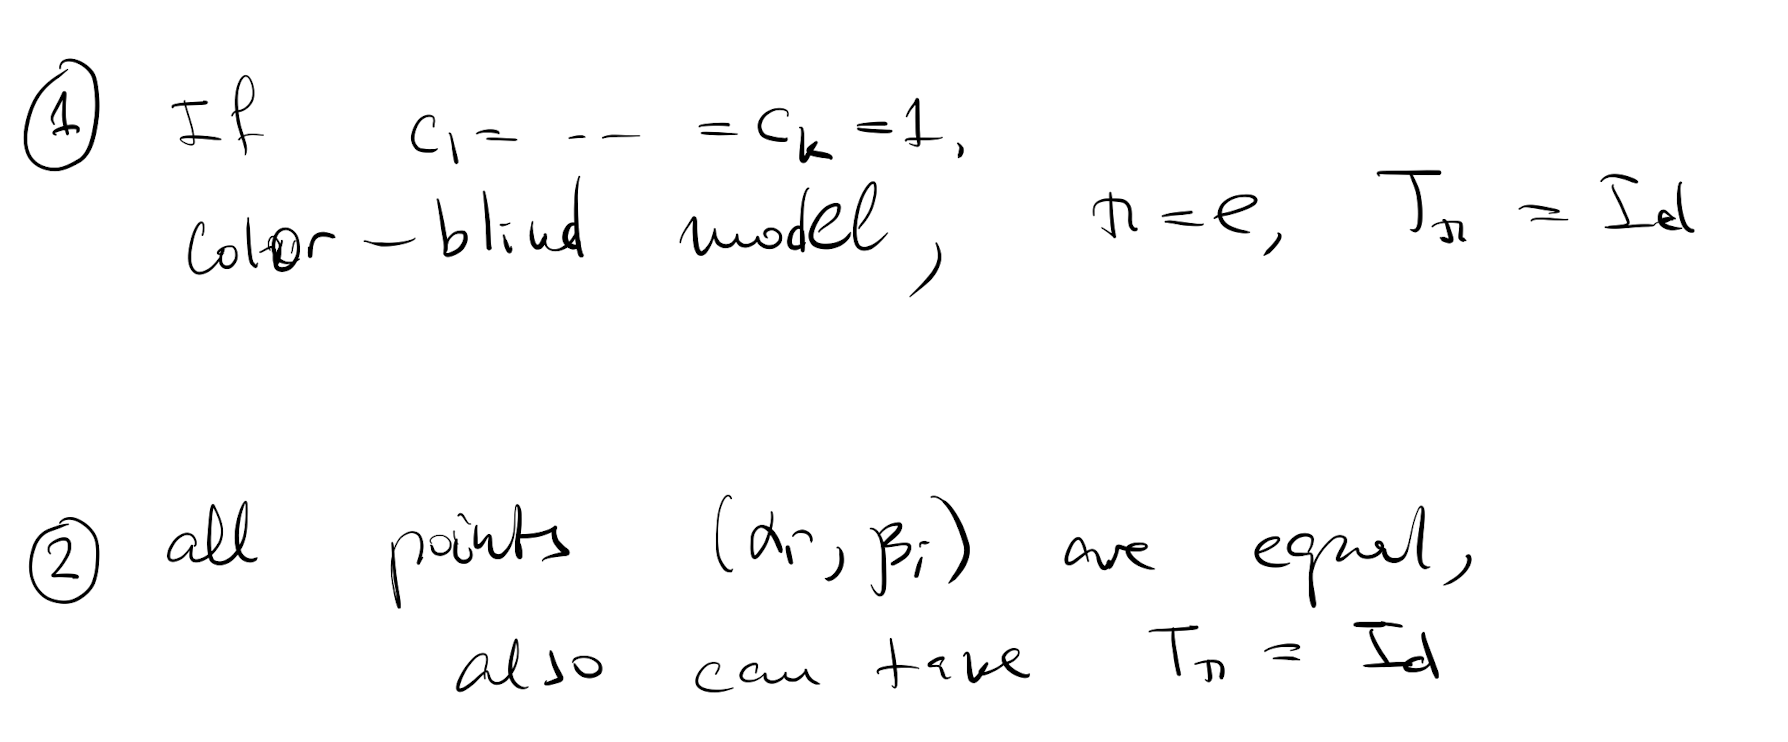 ① If c₁ = - - - = cₖ = 1,
color-blind model, π = e, T_π = Id
② all points (αᵢ, βᵢ) are equal,
also can take T_π = Id